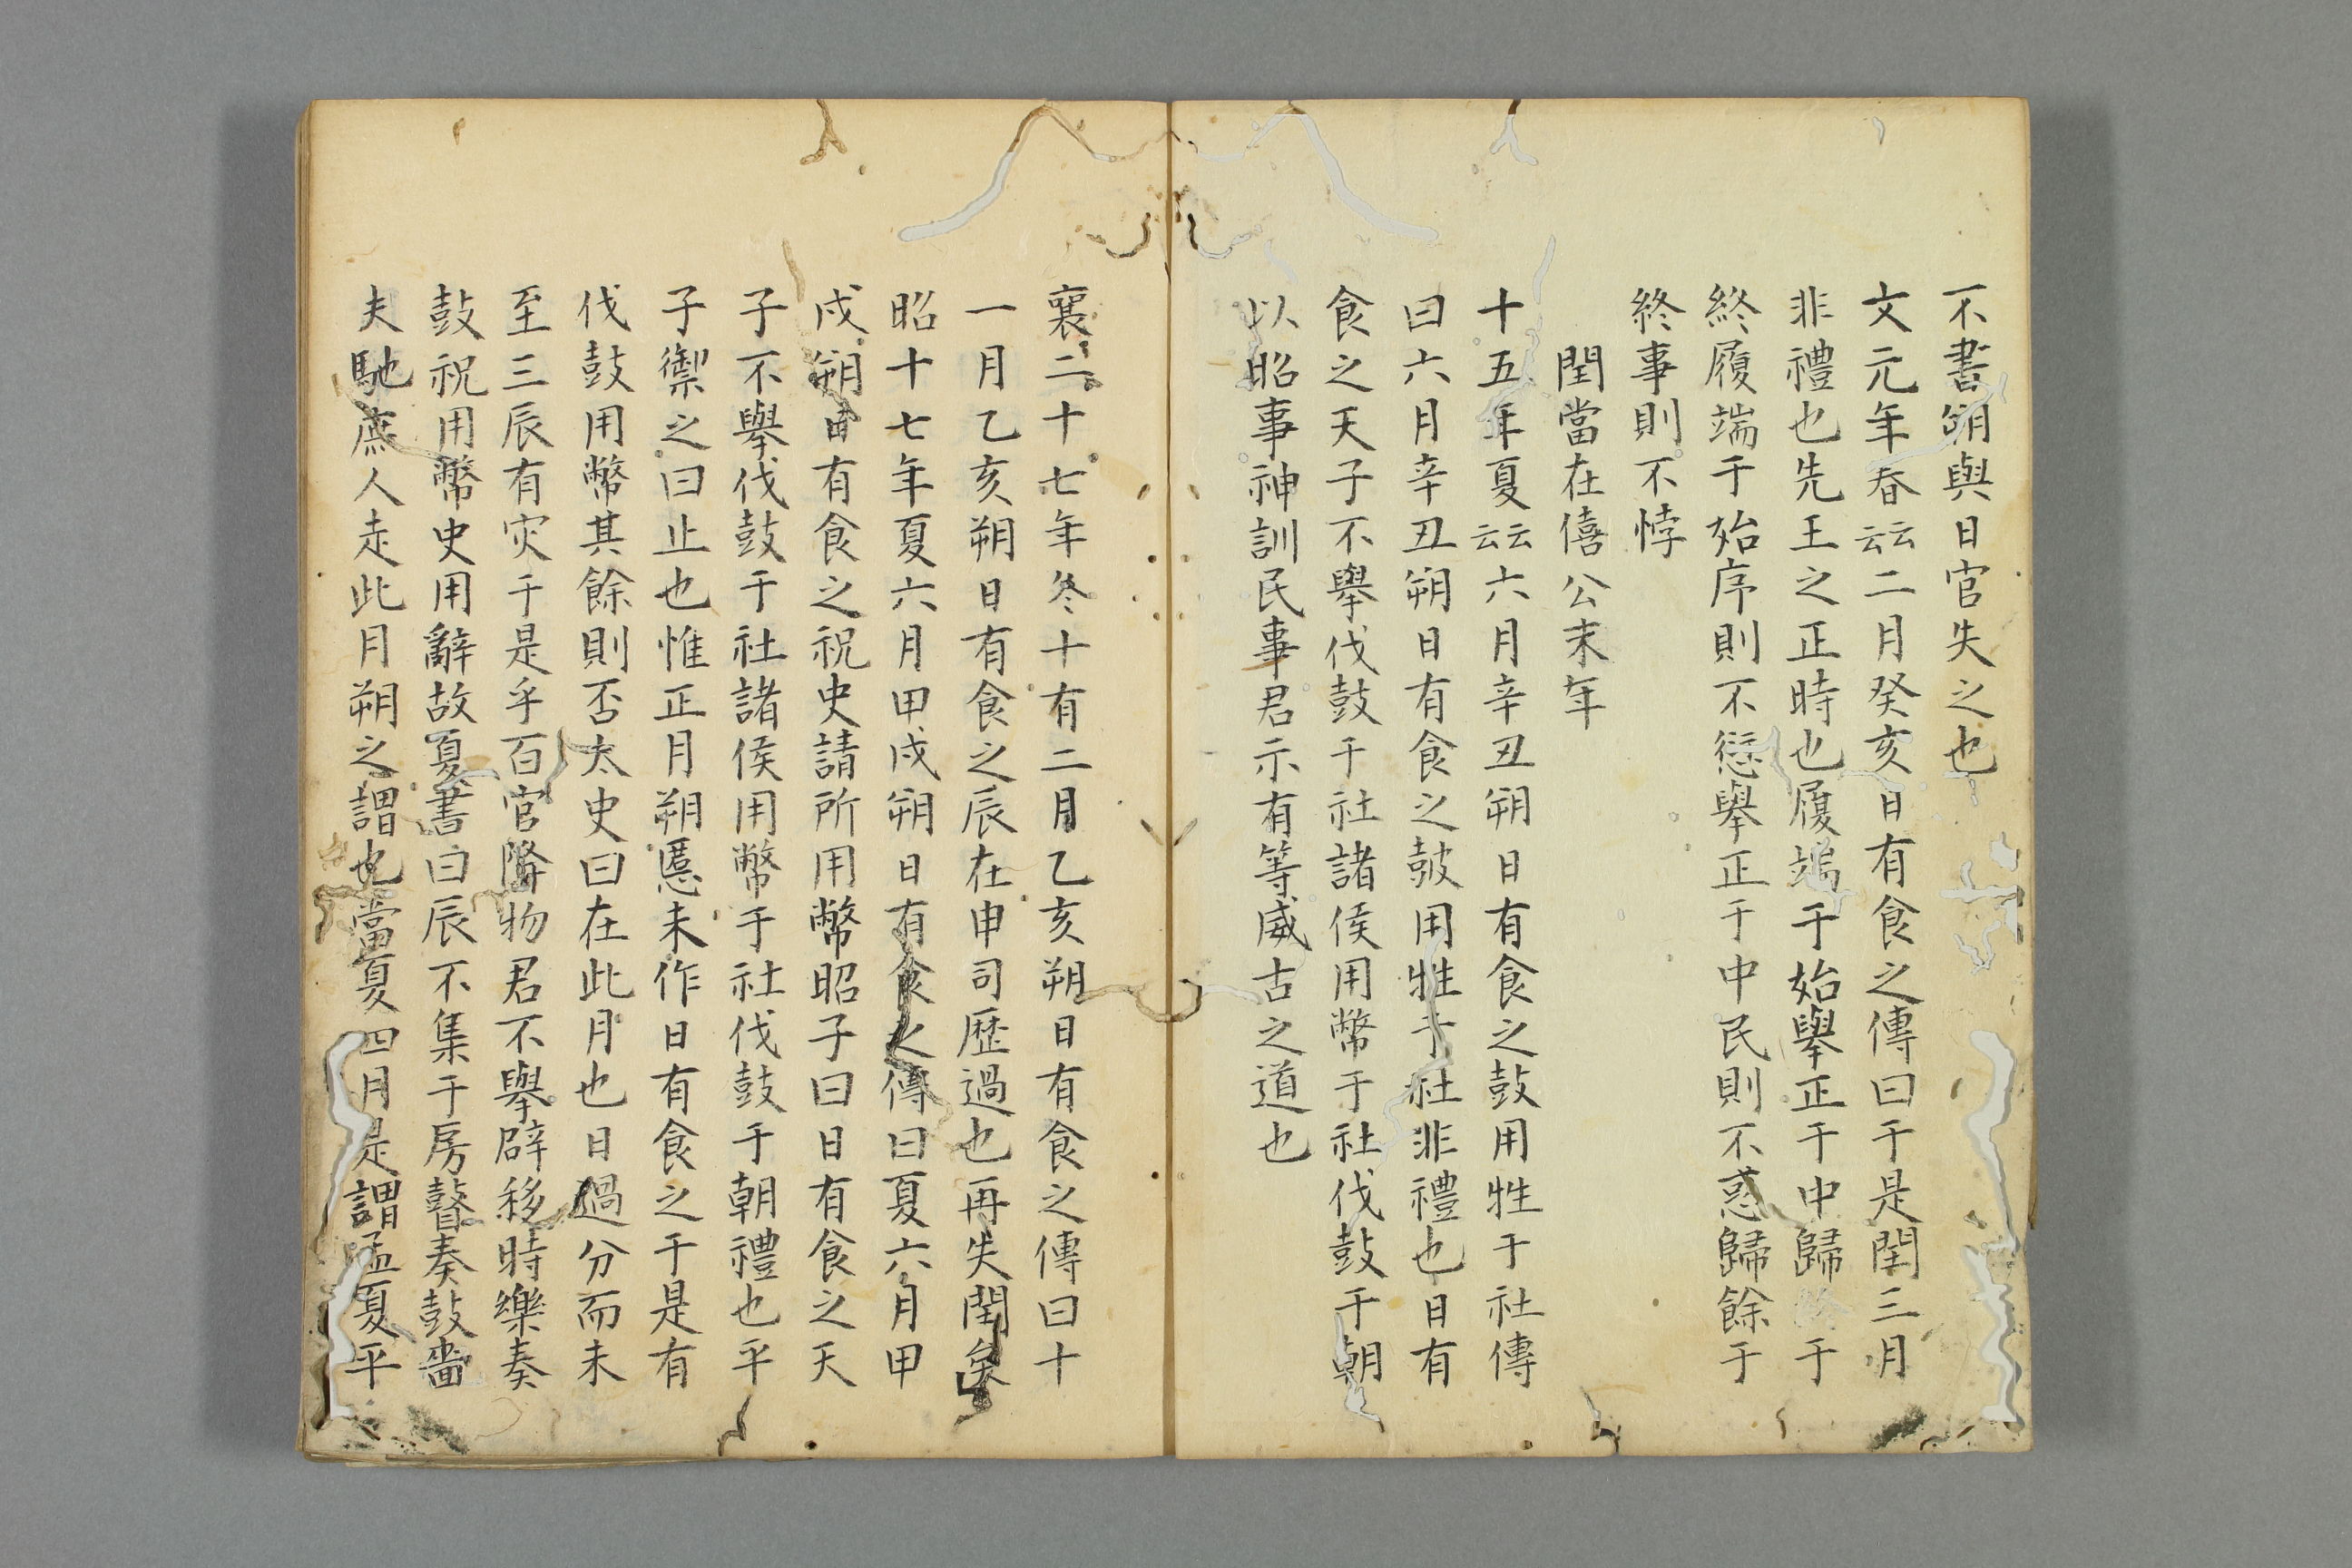 不書朔與日官失之也
文元年春云云二月癸亥日有食之傳曰于是閏三月
非禮也先王之正時也履端于始舉正于中歸終于
終履端于始序則不愆舉正于中民則不惑歸餘于
終事則不悖
閏當在僖公末年
十五年夏云云六月辛丑朔日有食之鼓用牲于社傳
曰六月辛丑朔日有食之皷用牲于社非禮也日有
食之天子不舉伐鼓于社諸侯用幣于社伐鼓于朝
以昭事神訓民事君示有等威古之道也
襄二十七年冬十有二月乙亥朔日有食之傳曰十
一月乙亥朔日有食之辰在申司歷過也再失閏矣
昭十七年夏六月甲戌朔日有食之傳曰夏六月甲
戌朔日有食之祝史請所用幣昭子曰日有食之天
子不舉伐鼓于社諸侯用幣于社伐鼓于朝禮也平
子禦之曰止也惟正月朔慝未作日有食之于是有
伐鼓用幣其餘則否太史曰在此月也日過分而未
至三辰有灾于是乎百官降物君不舉辟移時樂奏
鼓祝用幣史用辭故夏書曰辰不集于房瞽奏鼓嗇
夫馳庶人走此月朔之謂也當夏四月是謂孟夏平